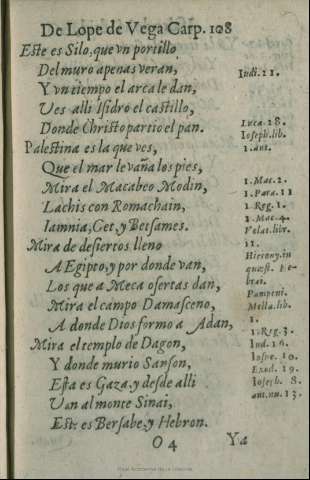 De Lope de Vega Carp. 108
Este es Silo, que vn portillo
Del muro apenas veran,
Y vn tiempo el arca le dan,
Ves alli Isidro el castillo,
Donde Christo partio el pan.
Palestina es la que ves,
Que el mar le vaña los pies,
Mira el Macabeo Modin,
Lachis con Romachain,
Iamnia, Get, y Betsames.
Mira de desiertos lleno
A Egipto, y por donde van,
Los que a Meca ofertas dan,
Mira el campo Damasceno,
A donde Dios formo a Adan,
Mira el templo de Dagon,
Y donde murio Sanson,
Esta es Gaza, y desde alli
Van al monte Sinai,
Este es Bersabe, y Hebron.
O 4 Ya
Iudi. 21.
Luca. 28.
Ioseph. lib.
1. ant.
1. Mac. 2.
1. Para. 11
1. Reg. 1.
1. Mac. 4.
Volat. libr.
11.
Hierony. in
quæst. He-
brai.
Pomponi.
Mella. lib.
1.
1. Reg. 3.
Iud. 16.
Iosue. 10.
Exod. 19.
Ioseph. 8.
ant. nu. 13.
Real Academia de la Historia